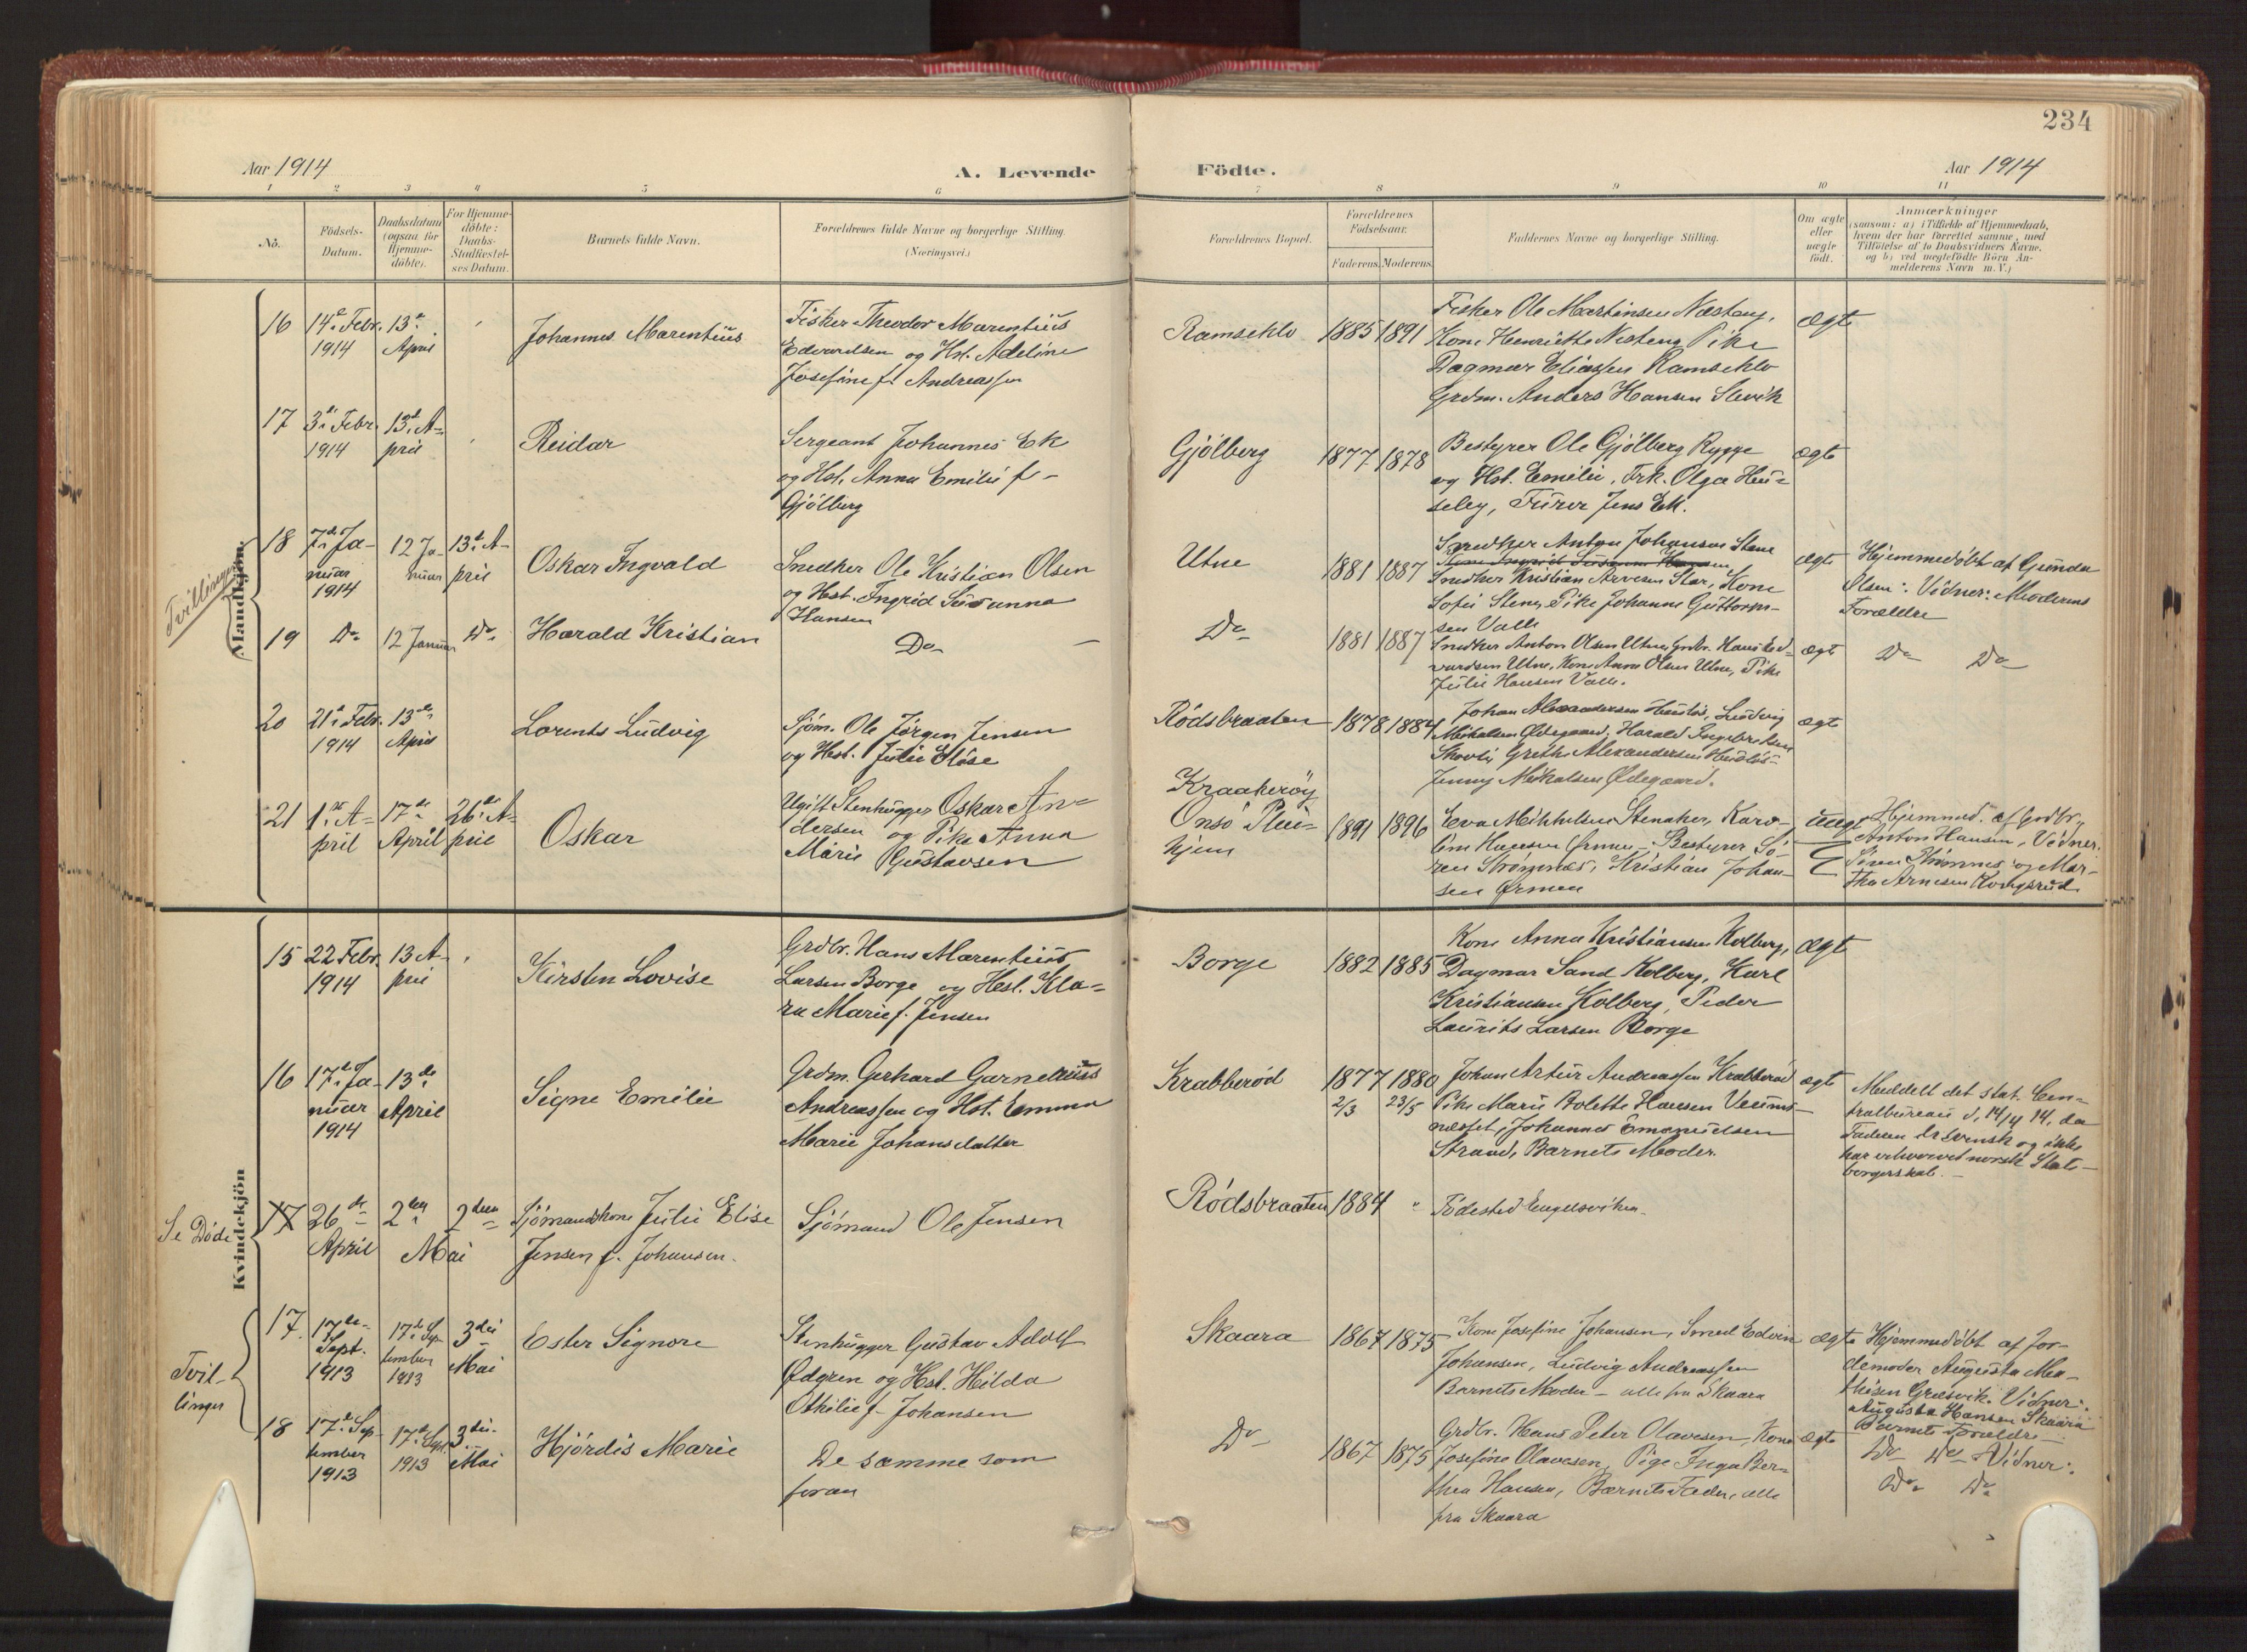 234
Aar 1914
A. Levende Födte.
Aar 1914
1 2 3 4 5 6 7 8 9 10 11
No.
Födsels-
Datum.
Daabsdatum
(ogsaa for
Hjemme-
döbte).
For Hjemme-
döbte:
Daabs-
Stadfæstel-
ses Datum.
Barnets fulde Navn.
Forældrenes fulde Navne og borgerlige Stilling.
(Næringsvei.)
Forældrenes Bopæl.
Forældrenes
Födselsaar.
Faderens. Moderens.
Faddernes Navne og borgerlige Stilling.
Om ægte
eller
uægte
födt.
Anmærkninger
(saasom: a) i Tilfælde af Hjemmedaab,
hvem der har forrettet samme, med
Tilföielse af to Daabsvidners Navne,
og b) ved uægtefödte Börn An-
melderens Navn m. V.)
Mandkjön.
16
14de Febr.
1914
13de
April
Johannes Marentius
Fisker Theodor Marentius
Edvardsen og Hst. Adeline
Josefine f. Andreassen
Ramseklo
1885 1891
Fisker Ole Martinsen Næsteng,
Kone Henriette Nesteng Pike
Dagmar Eliassen Ramseklo
Grdm. Anders Hansen Slevik
ægte
17
3de Febr.
1914
13de A-
pril
Reidar
Sergeant Johannes Ek
og Hst. Anna Emilie f.
Gjölberg
Gjölberg
1877 1878
Bestyrer Ole Gjölberg Rygge
og Hst. Emilie, Frk. Olga Hu-
seby, Furer Jens Ek.
ægte
Tvillinger
18
7de Ja-
nuar
1914
12 Ja-
nuar
13de A-
pril
Oskar Ingvald
Snedker Ole Kristian Olsen
og Hst. Ingrid Susanna
Hansen
Utne
1881 1887
Snedker Anton Johansen Stene
Kone Ingrid Susanne Hansen
Snedker Kristian Arvesen Star, Kone
Sofie Stene, Pike Johanne Guttorm-
sen Valle
ægte
Hjemmedöbt af Gunda
Olsen: Vidner: Moderens
Forældre
19
Do
12 Januar
Do
Harald Kristian
Do
Do
1881 1887
Snedker Anton Olsen Utne, Grdbr. Hans Ed-
vardsen Utne, Kone Anne Olsen Utne, Pike
Julie Hansen Valle.
ægte
Do Do
20
21de Febr.
1914
13de
April
Lorents Ludvig
Sjöm. Ole Jörgen Jensen
og Hst. Julie Elise
Rödsbraaten
1878 1884
Johan Alexandersen Huslös, Ludvig
Mikalsen Ødegaard, Harald Ingebretsen
Skovli, Grethe Alexandersen Huslös
Jenny Mikalsen Ødegaard.
ægte
21
1ste A-
pril
17de
April
26de A-
pril
Oskar
Ugift Stenhugger Oskar An-
dersen og Pike Anna
Marie Gustavsen
Kraakeröy
Onsö Plei-
hjem
1891 1896
Eva Mikkelsen Stenaker, Karo-
line Hansen Ørmen, Bestyrer Sö-
ren Strömnes, Kristian Johan-
sen Ørmen
uægt
Hjemmed. af Grdbr.
Anton Hansen, Vidner:
Sören Strömnes og Mar-
tha Arnesen Kongsrud
Kvindekjön
15
22 Febr.
1914
13 A-
pril
Kirsten Lovise
Grdbr. Hans Marentius
Larsen Borge og Hst. Kla-
ra Marie f. Jensen
Borge
1882 1885
Kone Anna Kristiansen Kolberg,
Dagmar Sand Kolberg, Karl
Kristiansen Kolberg, Peder
Laurits Larsen Borge
ægte
16
17de Ja-
nuar
1914
13de
April
Signe Emilie
Grdm. Gerhard Garnelius
Andreassen og Hst. Emma
Marie Johansdatter
Krabberöd
1877 1880
2/3 23/5
Johan Artur Andreassen Krabberöd
Pike Marie Bolette Hansen Veums-
næsset, Johannes Emanuelsen
Strand, Barnets Moder.
ægte
Meddelt det stat. Cen-
tralbureau d. 14/4 14, da
Faderen er svensk og ikke
har erhvervet norsk Stats-
borgerskab.
Se Döde
17
26de
April
2den
Mai
2den
Sjömandskone Julie Elise
Jensen f. Johansen.
Sjömand Ole Jensen
Rödsbraaten
1884 "
Födested Engelsviken.
Tvil-
linger
17.
17de
Sept.
1913
17de Sep-
tember
1913
3die
Mai
Ester Signore
Stenhugger Gustav Adolf
Ødgren og Hst. Hilda
Othilie f. Johansen
Skaara
1867 1875
Kone Josefine Johansen, Smed Edvin
Johansen, Ludvig Andreassen
Barnets Moder - alle fra Skaara
ægte
Hjemmedöbt af Jor-
demoder Augusta Ma-
thisen Græsvik. Vidner:
Augusta Hansen Skaara
Barnets Forældre
18
17de Sep-
tember
1913
17de Sept.
1913
3die
Mai
Hjördis Marie
De samme som
foran
Do
1867 1875
Grdbr. Hans Peter Olavesen, Kone
Josefine Olavesen, Pige Inga Ber-
thea Hansen, Barnets Fader, alle
fra Skaara
ægte
Do Do Vidner:
Do Do